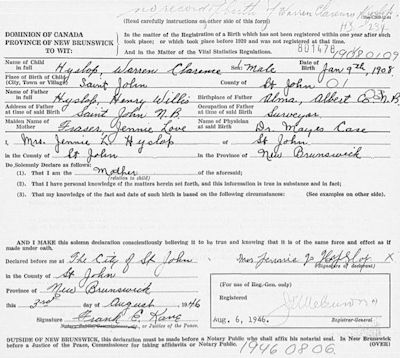 no record of birth for Warren Clarence Hyslop
(Read carefully instructions on other side of this form)
DOMINION OF CANADA
PROVINCE OF NEW BRUNSWICK
TO WIT:
In the matter of the Registration of a Birth which has not been registered within one year after such
took place; or which took place before 1920 and was not registered at that time.
And in the Matter of the Vital Statistics Regulations. 801478 19080109
Name of Child in full Hyslop, Warren Clarence Sex Male Date of Birth Jan 9th, 1908
Place of Birth of Child (City, Town or Village) Saint John St John 01
Name of Father in full Hyslop, Henry Willis Birthplace of Father Alma, Albert Co N.B.
Address of Father at time of said Birth Saint John N.B. Occupation of Father at time of said Birth Surveyor
Maiden Name of Mother Fraser, Jennie Love Name of Physician at said Birth Dr. Mayes Case
I, Mrs. Jennie L. Hyslop of St John
in the County of St John in the Province of New Brunswick
Do Solemnly Declare as follows:
(1). That I am the Mother of the aforesaid;
(relation to child)
(2). That I have personal knowledge of the matters herein set forth, and this information is true in substance and in fact;
(3). That my knowledge of the fact and date of such birth is based on the following circumstances: (See examples on other side).
AND I MAKE this solemn declaration conscientiously believing it to be true and knowing that it is of the same force and effect as if
made under oath.
Declared before me at The City of St John
in the County of St John
Mrs Jennie L Hyslop X
(Signature of declarant)
Province of New Brunswick
this 3rd day of August 1946
Signature Frank C. Kane
Notary Public, or Justice of the Peace.
(For use of Reg.-Gen. only)
Registered
AUG. 6, 1946.
Registrar-General
OUTSIDE OF NEW BRUNSWICK, this declaration must be made before a Notary Public who shall affix his notarial seal. In New Brunswick
before a Justice of the Peace, Commissioner for taking affidavits or Notary Public.
19460806